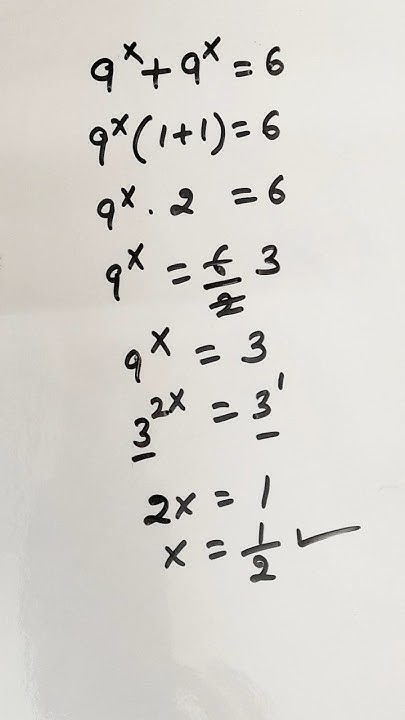 9^x + 9^x = 6
9^x (1+1) = 6
9^x . 2 = 6
9^x = 6/2 3
9^x = 3
3^2x = 3^1
2x = 1
x = 1/2 ✓